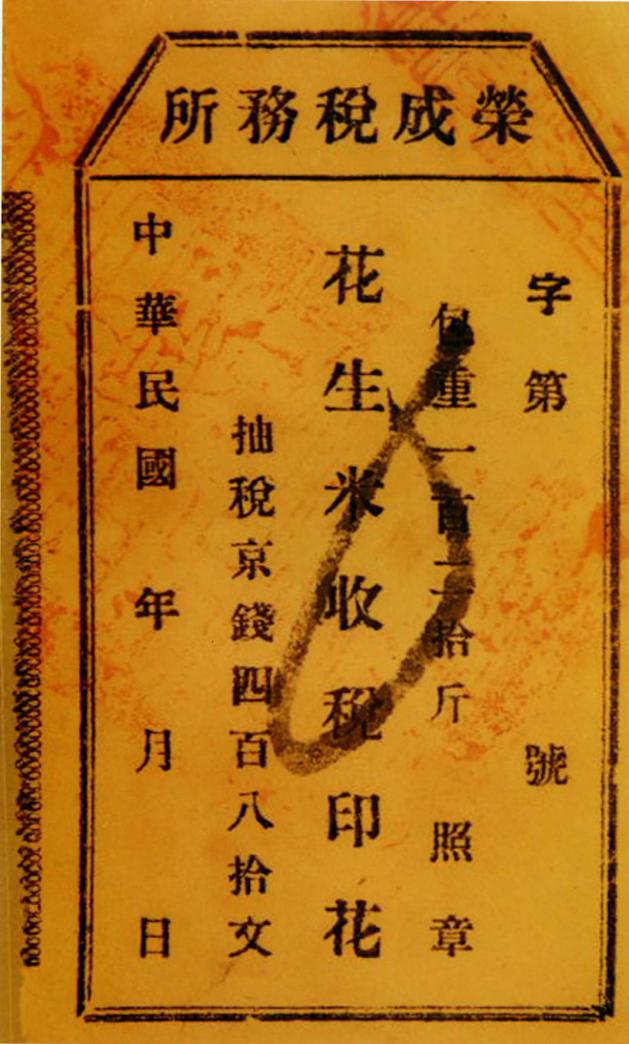 榮成稅務所
字第 號
包重一百二拾斤 照章
花生米收稅印花
抽稅京錢四百八拾文
中華民國 年 月 日